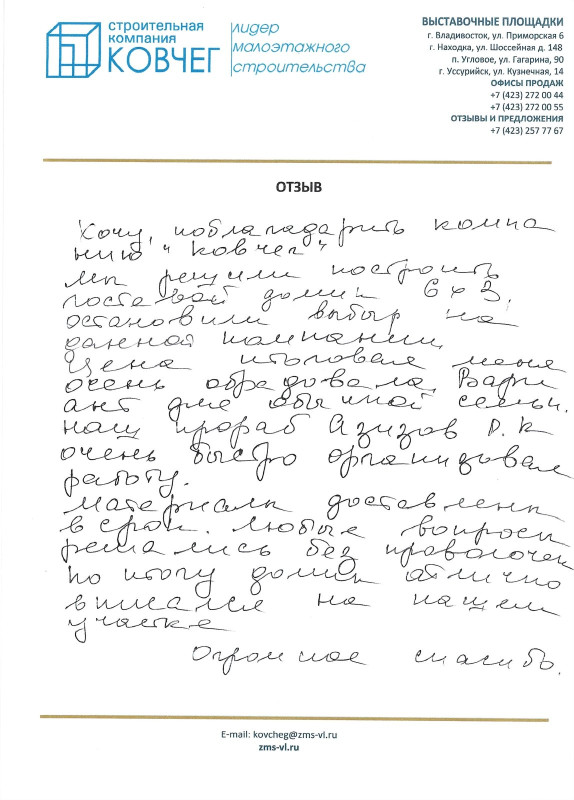 строительная
компания
КОВЧЕГ
лидер
малоэтажного
строительства
ВЫСТАВОЧНЫЕ ПЛОЩАДКИ
г. Владивосток, ул. Приморская 6
г. Находка, ул. Шоссейная д. 148
п. Угловое, ул. Гагарина, 90
г. Уссурийск, ул. Кузнечная, 14
ОФИСЫ ПРОДАЖ
+7 (423) 272 00 44
+7 (423) 272 00 55
ОТЗЫВЫ И ПРЕДЛОЖЕНИЯ
+7 (423) 257 77 67
ОТЗЫВ
Хочу, поблагадарить компа
нию "Ковчег"
мы решили построить
гостевой домик 6х3.
остановили выбор на
данной компании,
Цена итоговая меня
очень обрадовала, Вари
ант для обычной семьи.
наш прораб Азизов Р.К
очень быстро организовал
работу.
Материалы доставлены
в срок. Любые вопросы
решались без проволочек
по итогу домик отлично
вписался на нашем
участке
Огромное спасибо.
E-mail: kovcheg@zms-vl.ru
zms-vl.ru